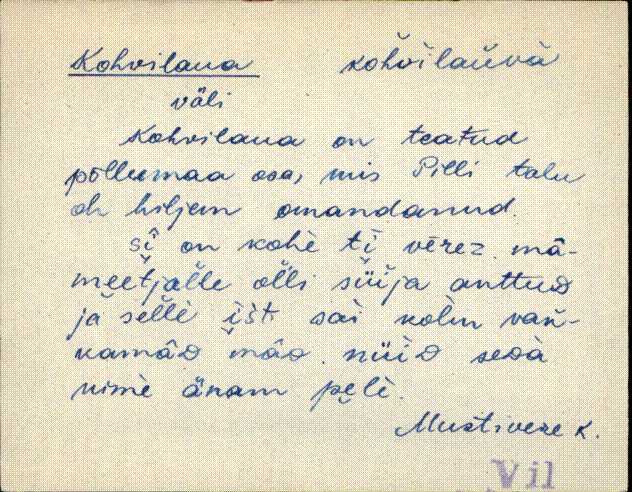 Kohvilaua kohvilauva
väli
Kohvilaua on teatud
põllumaa osa, mis Pilli talu
on hiljem omandanud.
sî on kohè tì vêrez mâ-
meetjalle olli süija anttuᴅ
ja sellè išt sai kolm vaň-
kamâᴅ mâᴅ. nüiᴅ sedà
nimè änam pelè.
Mustivere k.
Vil